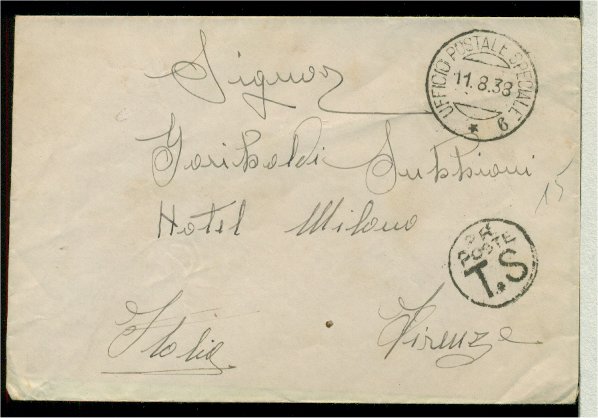 Signor
UFFICIO POSTALE SPECIALE 6
11.8.38
Garibaldi
Hotel Milano
15
POSTE
T.S
Italia Firenze